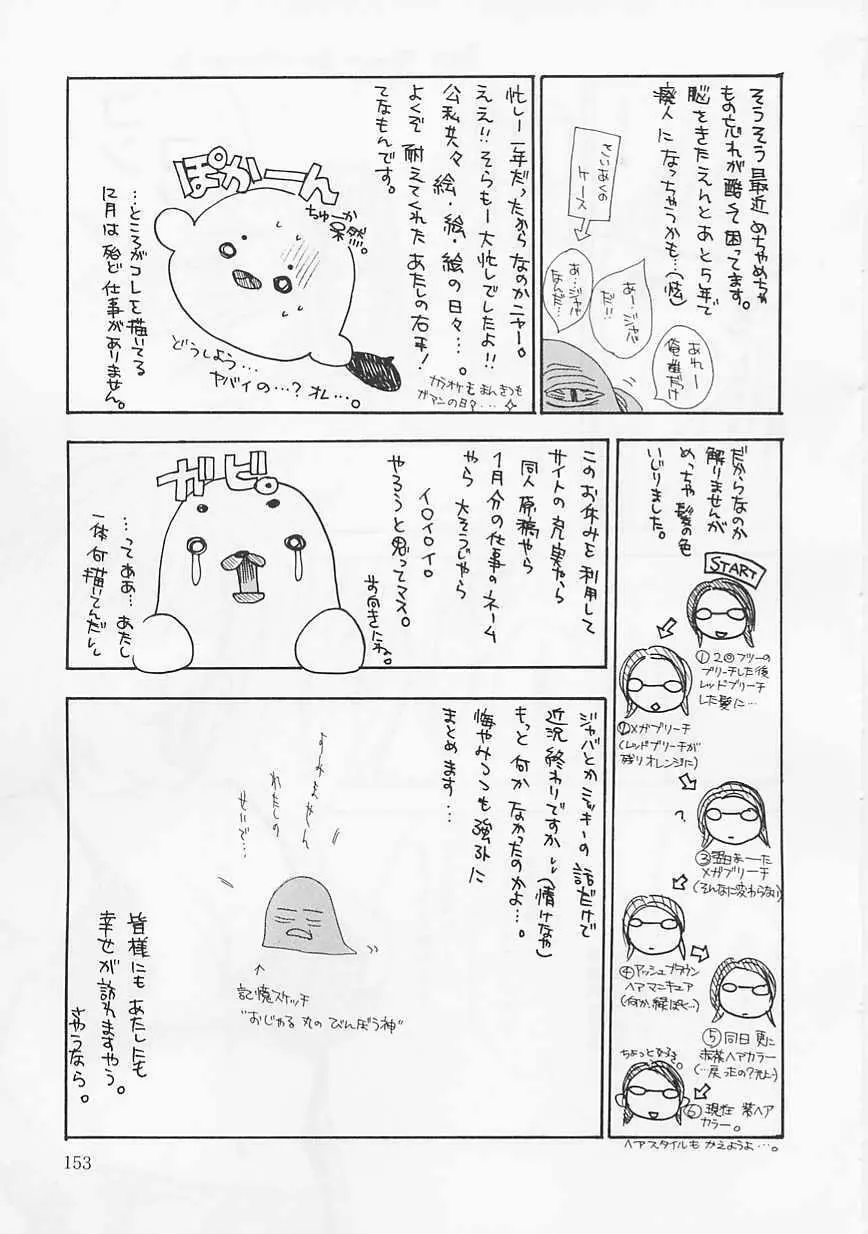 そうそう最近めちゃめちゃ
もの忘れが酷くて困ってます。
脳をきたえんとあと5年で
廃人になっちゃうかも…(怯)
といあくの
ケース
あれー
俺誰だっけ
あー…ジャバ
だ!!
あ…ジャバ
なんだ…
忙しー年だったからなのかニャー。
ええ!!そらもー大忙しでしたよ!!
公私共々絵・絵・絵の日々…。
よくぞ耐えてくれたあたしの右手!
てなもんです。
カラオケもまんきつも
ガマンの日々…
ぽかーん
ちゅーか呆然。
…ところがコレを描いてる
12月は殆ど仕事がありません。
どうしよう…
ヤバイの…?オレ…。
だからなのか
解りませんが
めっちゃ髪の色
いじりました。
START
①2回フツーの
ブリーチした後
レッドブリーチ
した髪に…
②メガブリーチ
(レッドブリーチが
残りオレンジに)
③翌日まーた
メガブリーチ
(そんなに変わらない)
④アッシュブラウン
ヘアマニキュア
(何か、緑ぽく…)
⑤同日更に
赤茶ヘアカラー
(…戻ったの?元に…)
ちょっと好き。
⑥現在 紫ヘア
カラー。
ヘアスタイルもかえようよ…。
このお休みを利用して
サイトの充実やら
同人原稿やら
1月分の仕事のネーム
やら大そうじやら
イロイロイロ
やろうと思ってマス。
前向きにね。
ガビ。
…ってああ…あたし
一体何描いてんだしし
ジャバとかミッキーの話だけで
近況終わりですか(情けなや)
もっと何かなかったのかよ…。
悔やみつつも強引に
まとめます…
すみません
わたしの
せいで…
↑
記憶スケッチ
"おじゃる丸のびんぼう神"
皆様にもあたしにも
幸せが訪れますやう。
さやうなら。
153